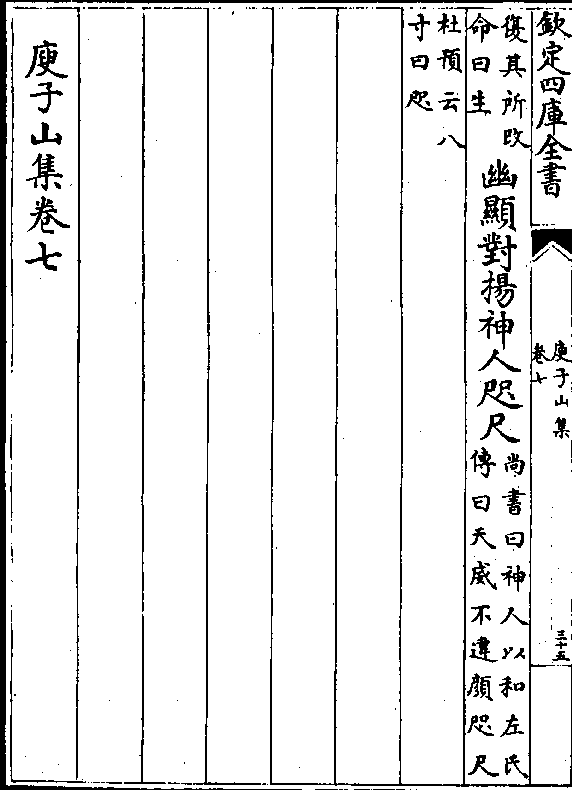 欽定四庫全書
庾子山集
卷七
三十五
復其所改
命曰生
幽顯對揚神人咫尺
尚書曰神人以和左氏
傳曰天威不違顔咫尺
杜預云八
寸曰咫
庾子山集卷七